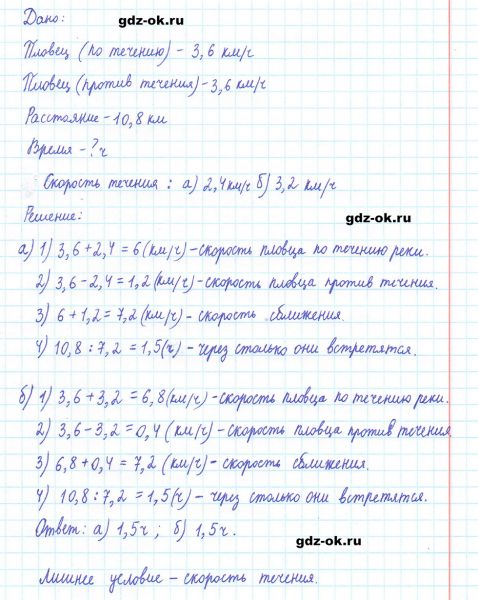 Дано:
gdz-ok.ru
Пловец (по течению) - 3,6 км/ч
Пловец (против течения) - 3,6 км/ч
Расстояние - 10,8 км
Время - ? ч
Скорость течения : а) 2,4 км/ч б) 3,2 км/ч
Решение:
gdz-ok.ru
а) 1) 3,6 + 2,4 = 6 (км/ч) - скорость пловца по течению реки.
2) 3,6 - 2,4 = 1,2 (км/ч) - скорость пловца против течения.
3) 6 + 1,2 = 7,2 (км/ч) - скорость сближения.
4) 10,8 : 7,2 = 1,5 (ч) - через столько они встретятся.
б) 1) 3,6 + 3,2 = 6,8 (км/ч) - скорость пловца по течению реки.
2) 3,6 - 3,2 = 0,4 (км/ч) - скорость пловца против течения
3) 6,8 + 0,4 = 7,2 (км/ч) - скорость сближения.
4) 10,8 : 7,2 = 1,5 (ч) - через столько они встретятся.
Ответ: а) 1,5 ч ; б) 1,5 ч .
gdz-ok.ru
Лишнее условие - скорость течения.